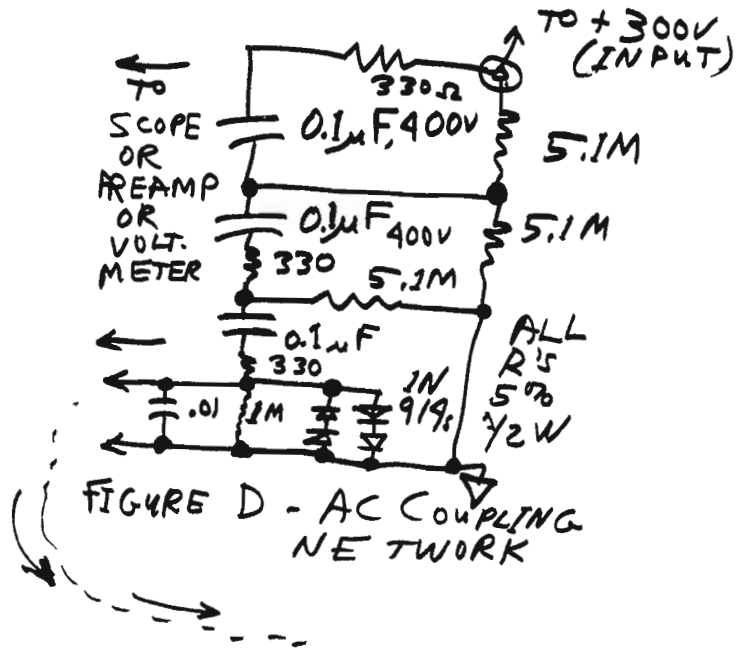 TO + 300V
(INPUT)
330Ω
TO
SCOPE
OR
PREAMP
OR
VOLT.
METER
0.1µF, 400V
5.1M
0.1µF 400V
5.1M
330
5.1M
0.1µF
330
ALL
R'S
5%
1/2 W
.01
1M
1N
914s
FIGURE D - AC COUPLING
NETWORK